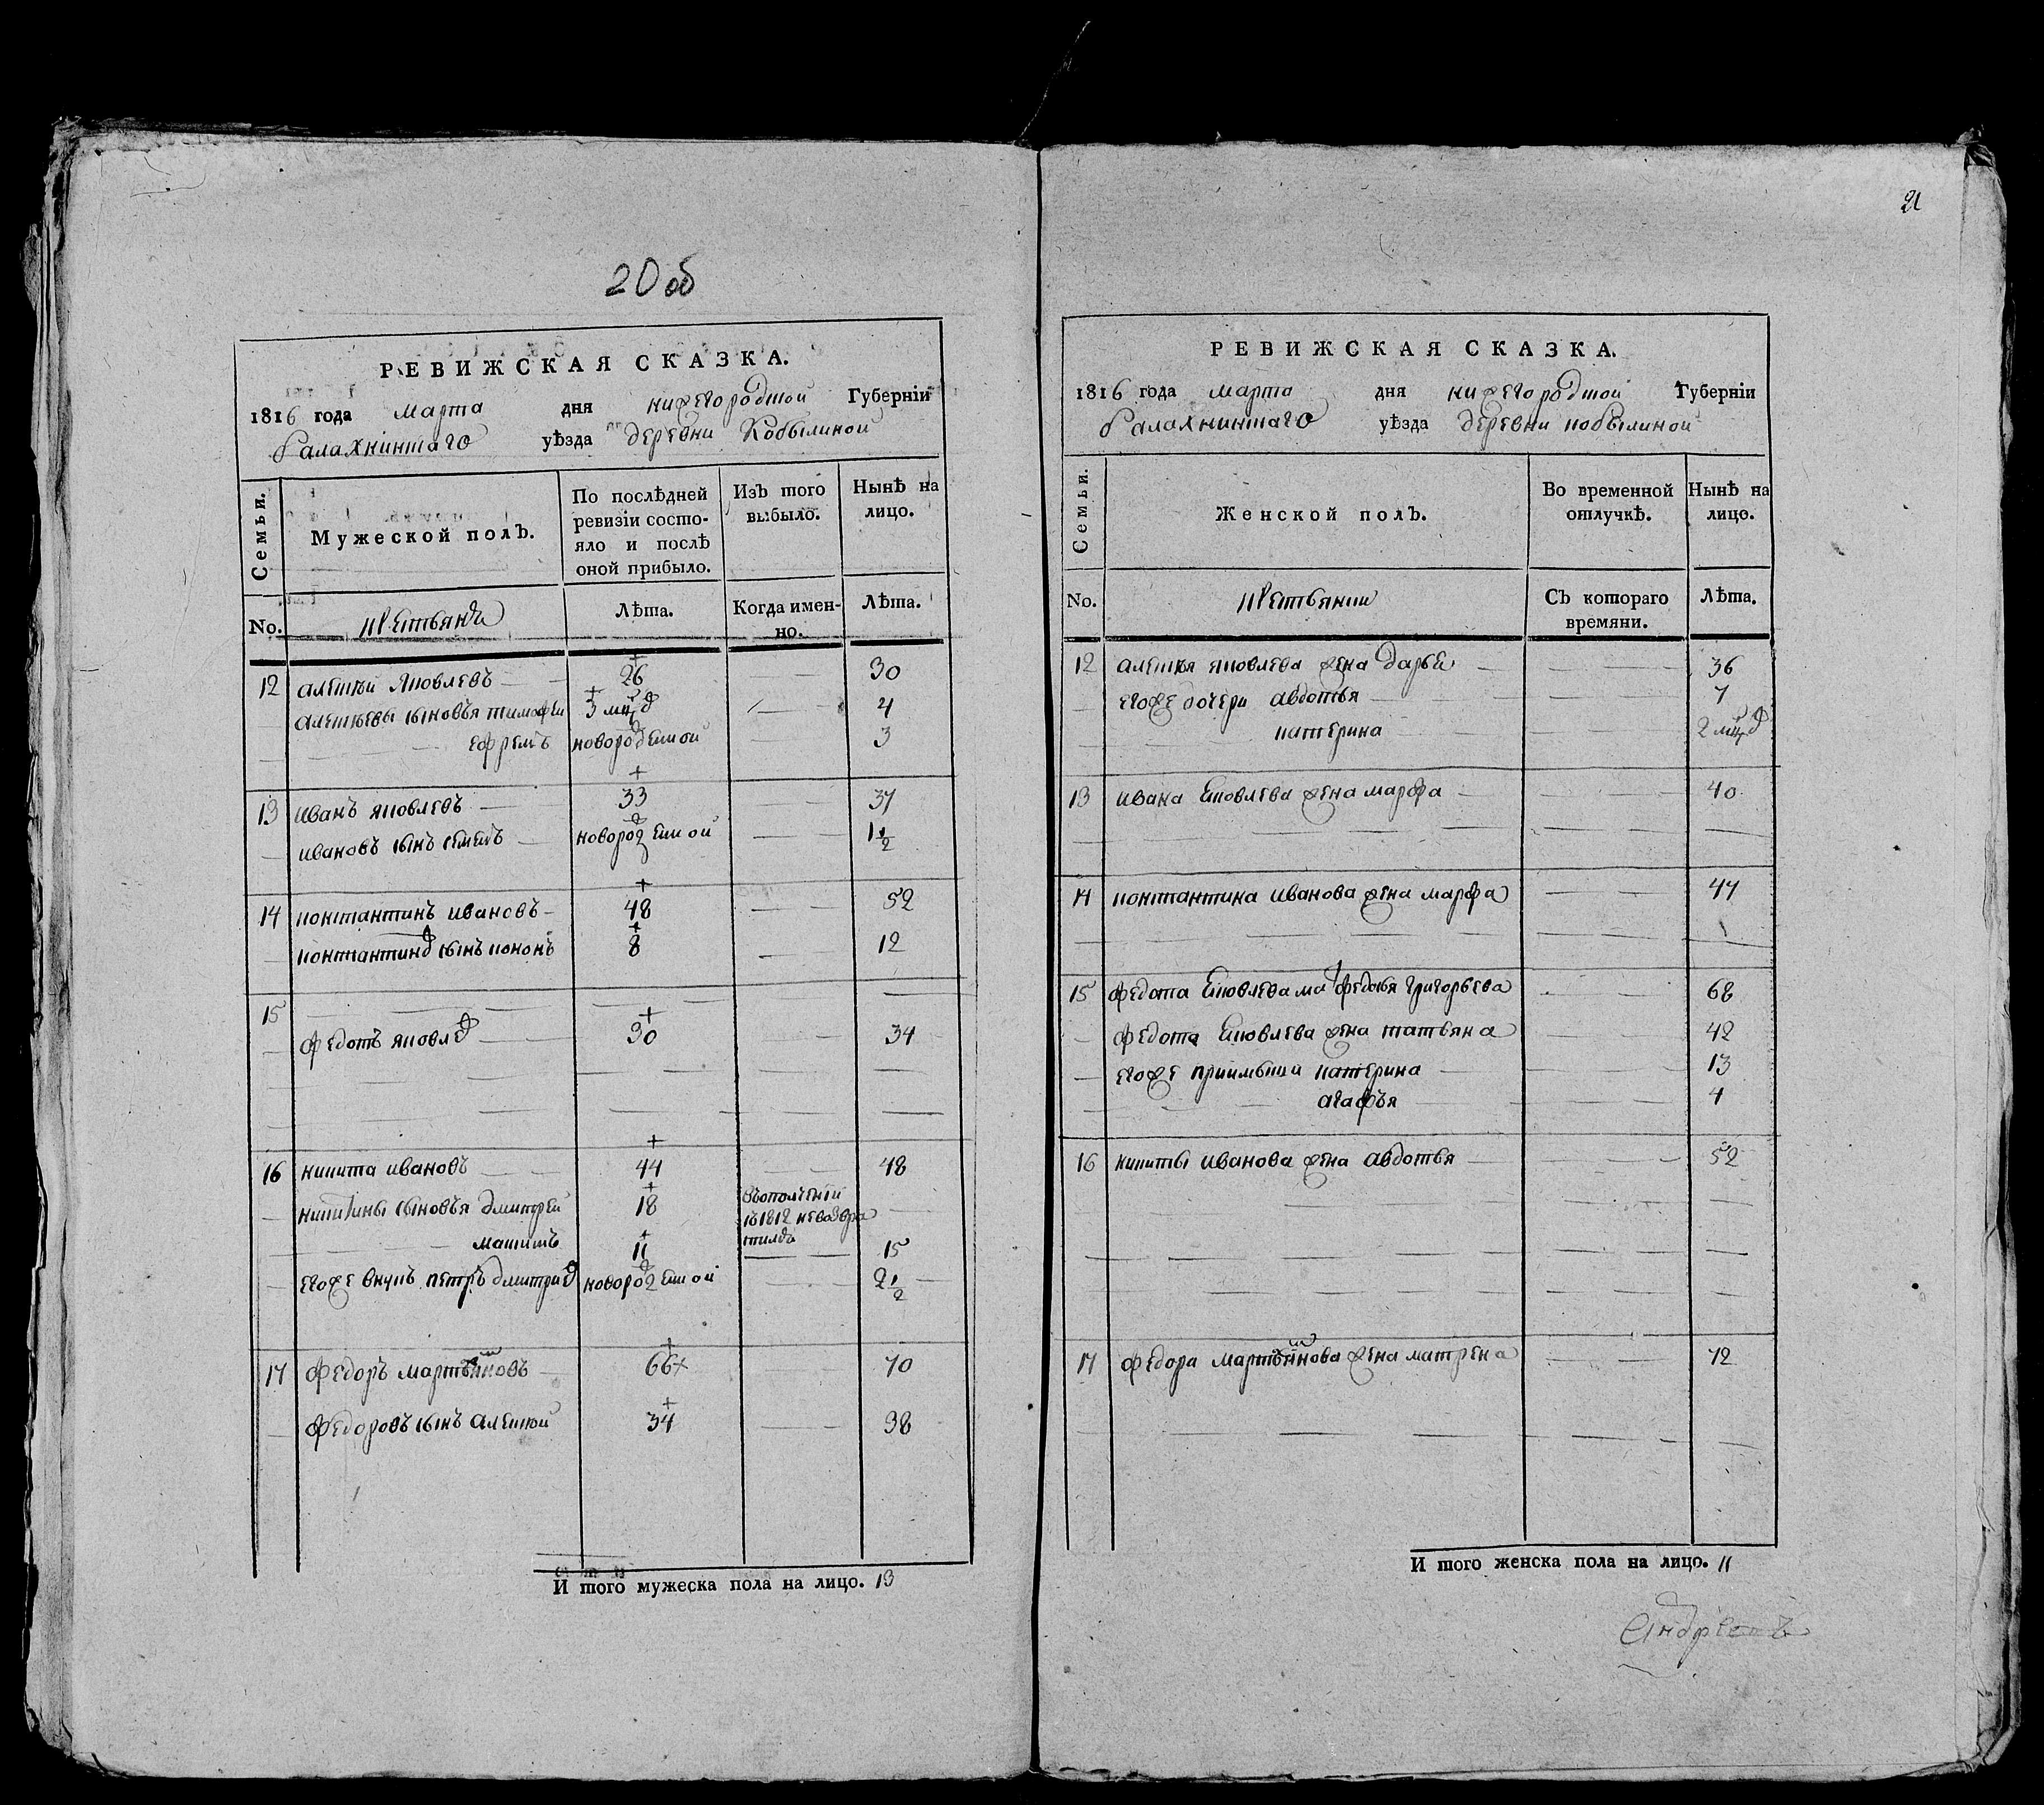 21
20 об
РЕВИЖСКАЯ СКАЗКА.
1816 года марта дня нижегородской Губерніи
балахнинскаго уѣзда деревни Кобылиной
Семьи.
Мужеской полъ.
По послѣдней ревизіи состояло и послѣ оной прибыло.
Изъ того выбыло.
Нынѣ на лицо.
No. крестьяня Лѣта. Когда именно. Лѣта.
12 алексѣй яковлевъ 26 30
алексѣевы сыновья тимофей 3 мцъ 4
ефремъ новорожденной 3
13 иванъ яковлевъ 33 37
ивановъ сынъ семенъ новорожденной 1 1/2
14 константинъ ивановъ 48 52
константиновъ сынъ кононъ 8 12
15
федотъ яковлевъ 30 34
16 никита ивановъ 44 48
никитины сыновья дмитрей 18 въ ополчении
въ 1812 не возвратился
максимъ 11 15
егоже внукъ петръ дмитриевъ новорожденной 2 1/2
17 федоръ мартыновъ 66 70
федоровъ сынъ алексѣй 34 38
И того мужеска пола на лицо. 13
РЕВИЖСКАЯ СКАЗКА.
1816 года марта дня нижегородской Губерніи
балахнинскаго уѣзда деревни кобылиной
Семьи.
Женской полъ.
Во временной отлучкѣ.
Нынѣ на лицо.
No. крестьянки Съ котораго времяни. Лѣта.
12 алексѣя яковлева жена дарья 36
егоже дочери авдотья 7
катерина 2 мцъ
13 ивана яковлева жена марфа 40
14 константина иванова жена марфа 47
15 федота яковлева мать федосья григорьева 68
федота яковлева жена татьяна 42
егоже приимыши катерина 13
агафья 4
16 никиты иванова жена авдотья 52
17 федора мартынова жена матрена 72
И того женска пола на лицо. 11